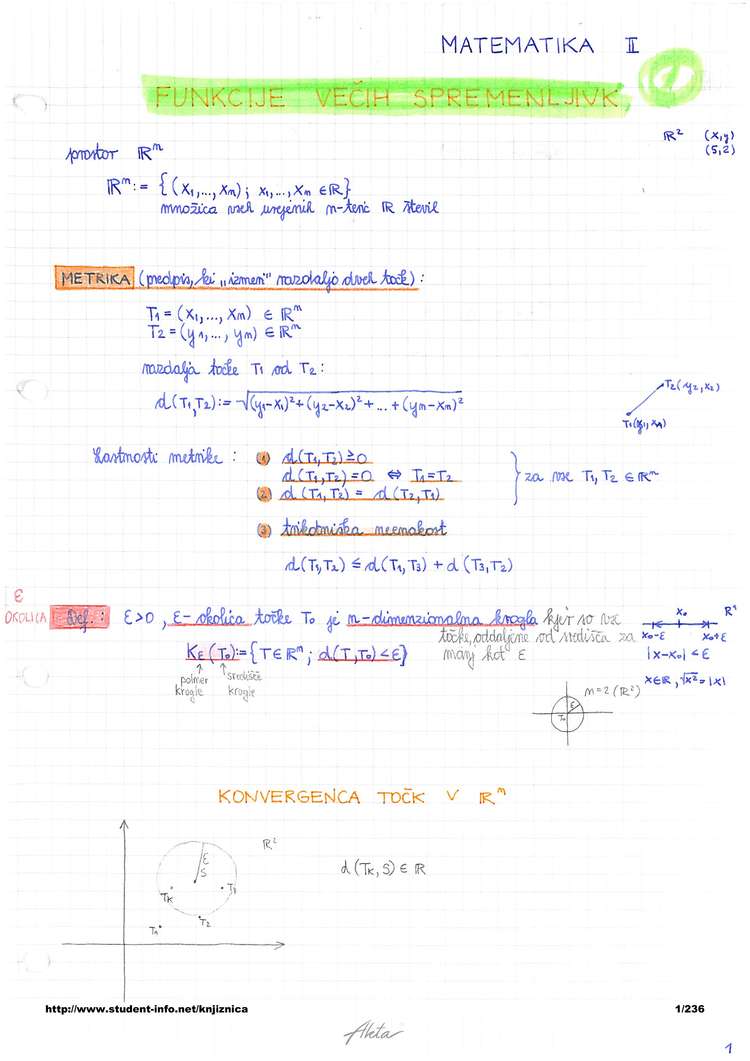 MATEMATIKA II
1
FUNKCIJE VEČIH SPREMENLJIVK
ℝ² (x,y)
(5,2)
prostor ℝⁿ
ℝⁿ:= {(x₁,...,xₙ); x₁,...,xₙ ∈ℝ}
množica vseh urejenih n-teric ℝ števil
METRIKA (predpis, ki „izmeri" razdaljo dveh točk):
T₁ = (x₁,..., xₙ) ∈ ℝⁿ
T₂ = (y₁,..., yₙ) ∈ ℝⁿ
razdalja točke T₁ od T₂:
d(T₁,T₂):= √(y₁-x₁)²+(y₂-x₂)²+...+(yₙ-xₙ)²
T₂(y₂,x₂)
T₁(y₁,x₁)
Lastnosti metrike: (1) d(T₁,T₂)≥0
d(T₁,T₂)=0 ⇔ T₁=T₂
za vse T₁,T₂ ∈ℝⁿ
(2) d(T₁,T₂) = d(T₂,T₁)
(3) trikotniška neenakost
d(T₁,T₂) ≤ d(T₁,T₃) + d(T₃,T₂)
ε
OKOLICA Def.: ε>0, ε-okolica točke T₀ je n-dimenzionalna krogla kjer so vse
točke, oddaljene od središča za
manj kot ε
K_ε(T₀):={T∈ℝⁿ; d(T,T₀)<ε}
polmer krogle
središče krogle
x₀ ℝ¹
x₀-ε x₀+ε
|x-x₀| < ε
x∈ℝ, √x²=|x|
n=2 (ℝ²)
ε
T₀
KONVERGENCA TOČK V ℝⁿ
ℝ²
ε
S
d(Tₖ,S) ∈ ℝ
Tₖ
T₂
http://www.student-info.net/knjiznica
1/236
1